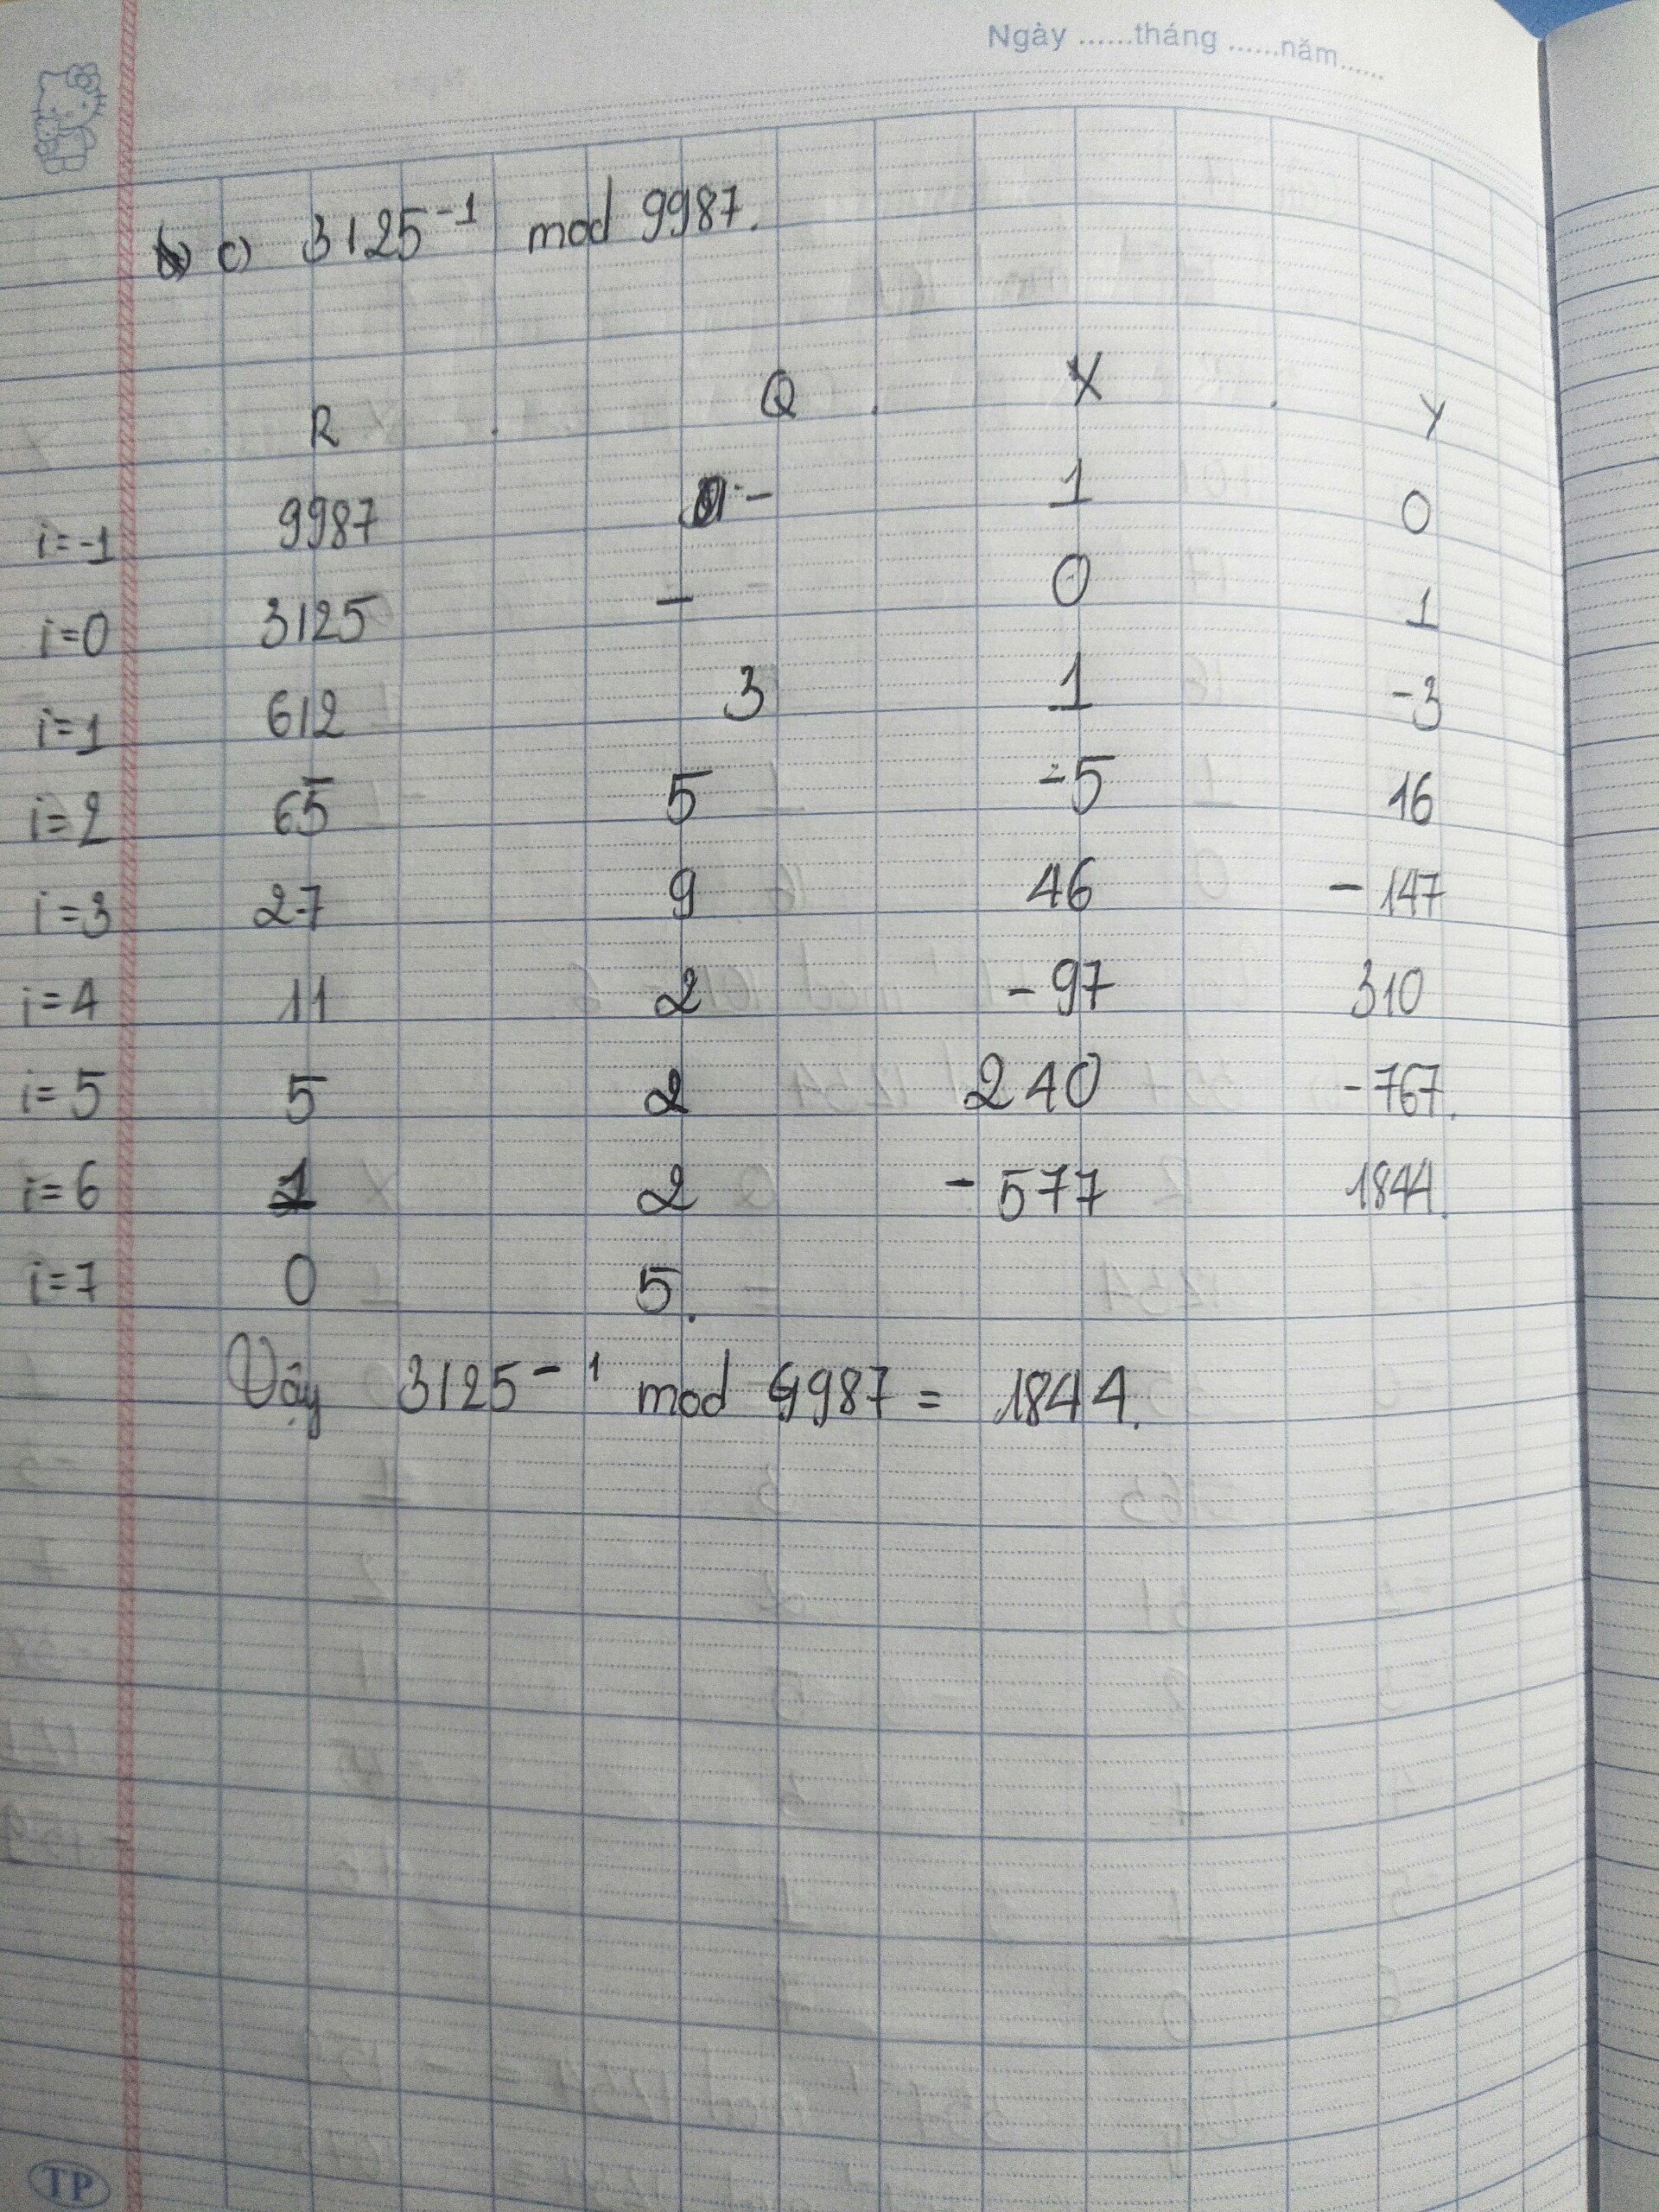 Ngày ......tháng ......năm......
c) 3125⁻¹ mod 9987.
R . Q . X . Y
i=-1 9987 - 1 0
i=0 3125 - 0 1
i=1 612 3 1 -3
i=2 65 5 -5 16
i=3 27 9 46 -147
i=4 11 2 -97 310
i=5 5 2 240 -767.
i=6 1 2 -577 1844.
i=7 0 5.
Vậy 3125⁻¹ mod 9987 = 1844.
TP